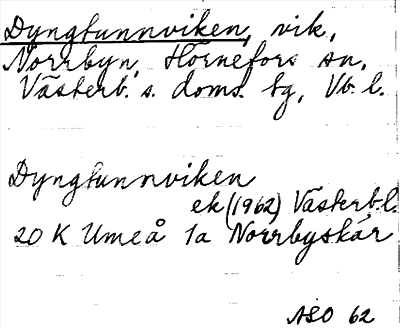 Dyngtunnviken, vik,
Norrbyn, Hörnefors sn,
Västerb. s. doms. tg, Vb. l.
Dyngtunnviken
ek (1962) Västerb.l.
20 K Umeå 1a Norrbyskär
ASO 62